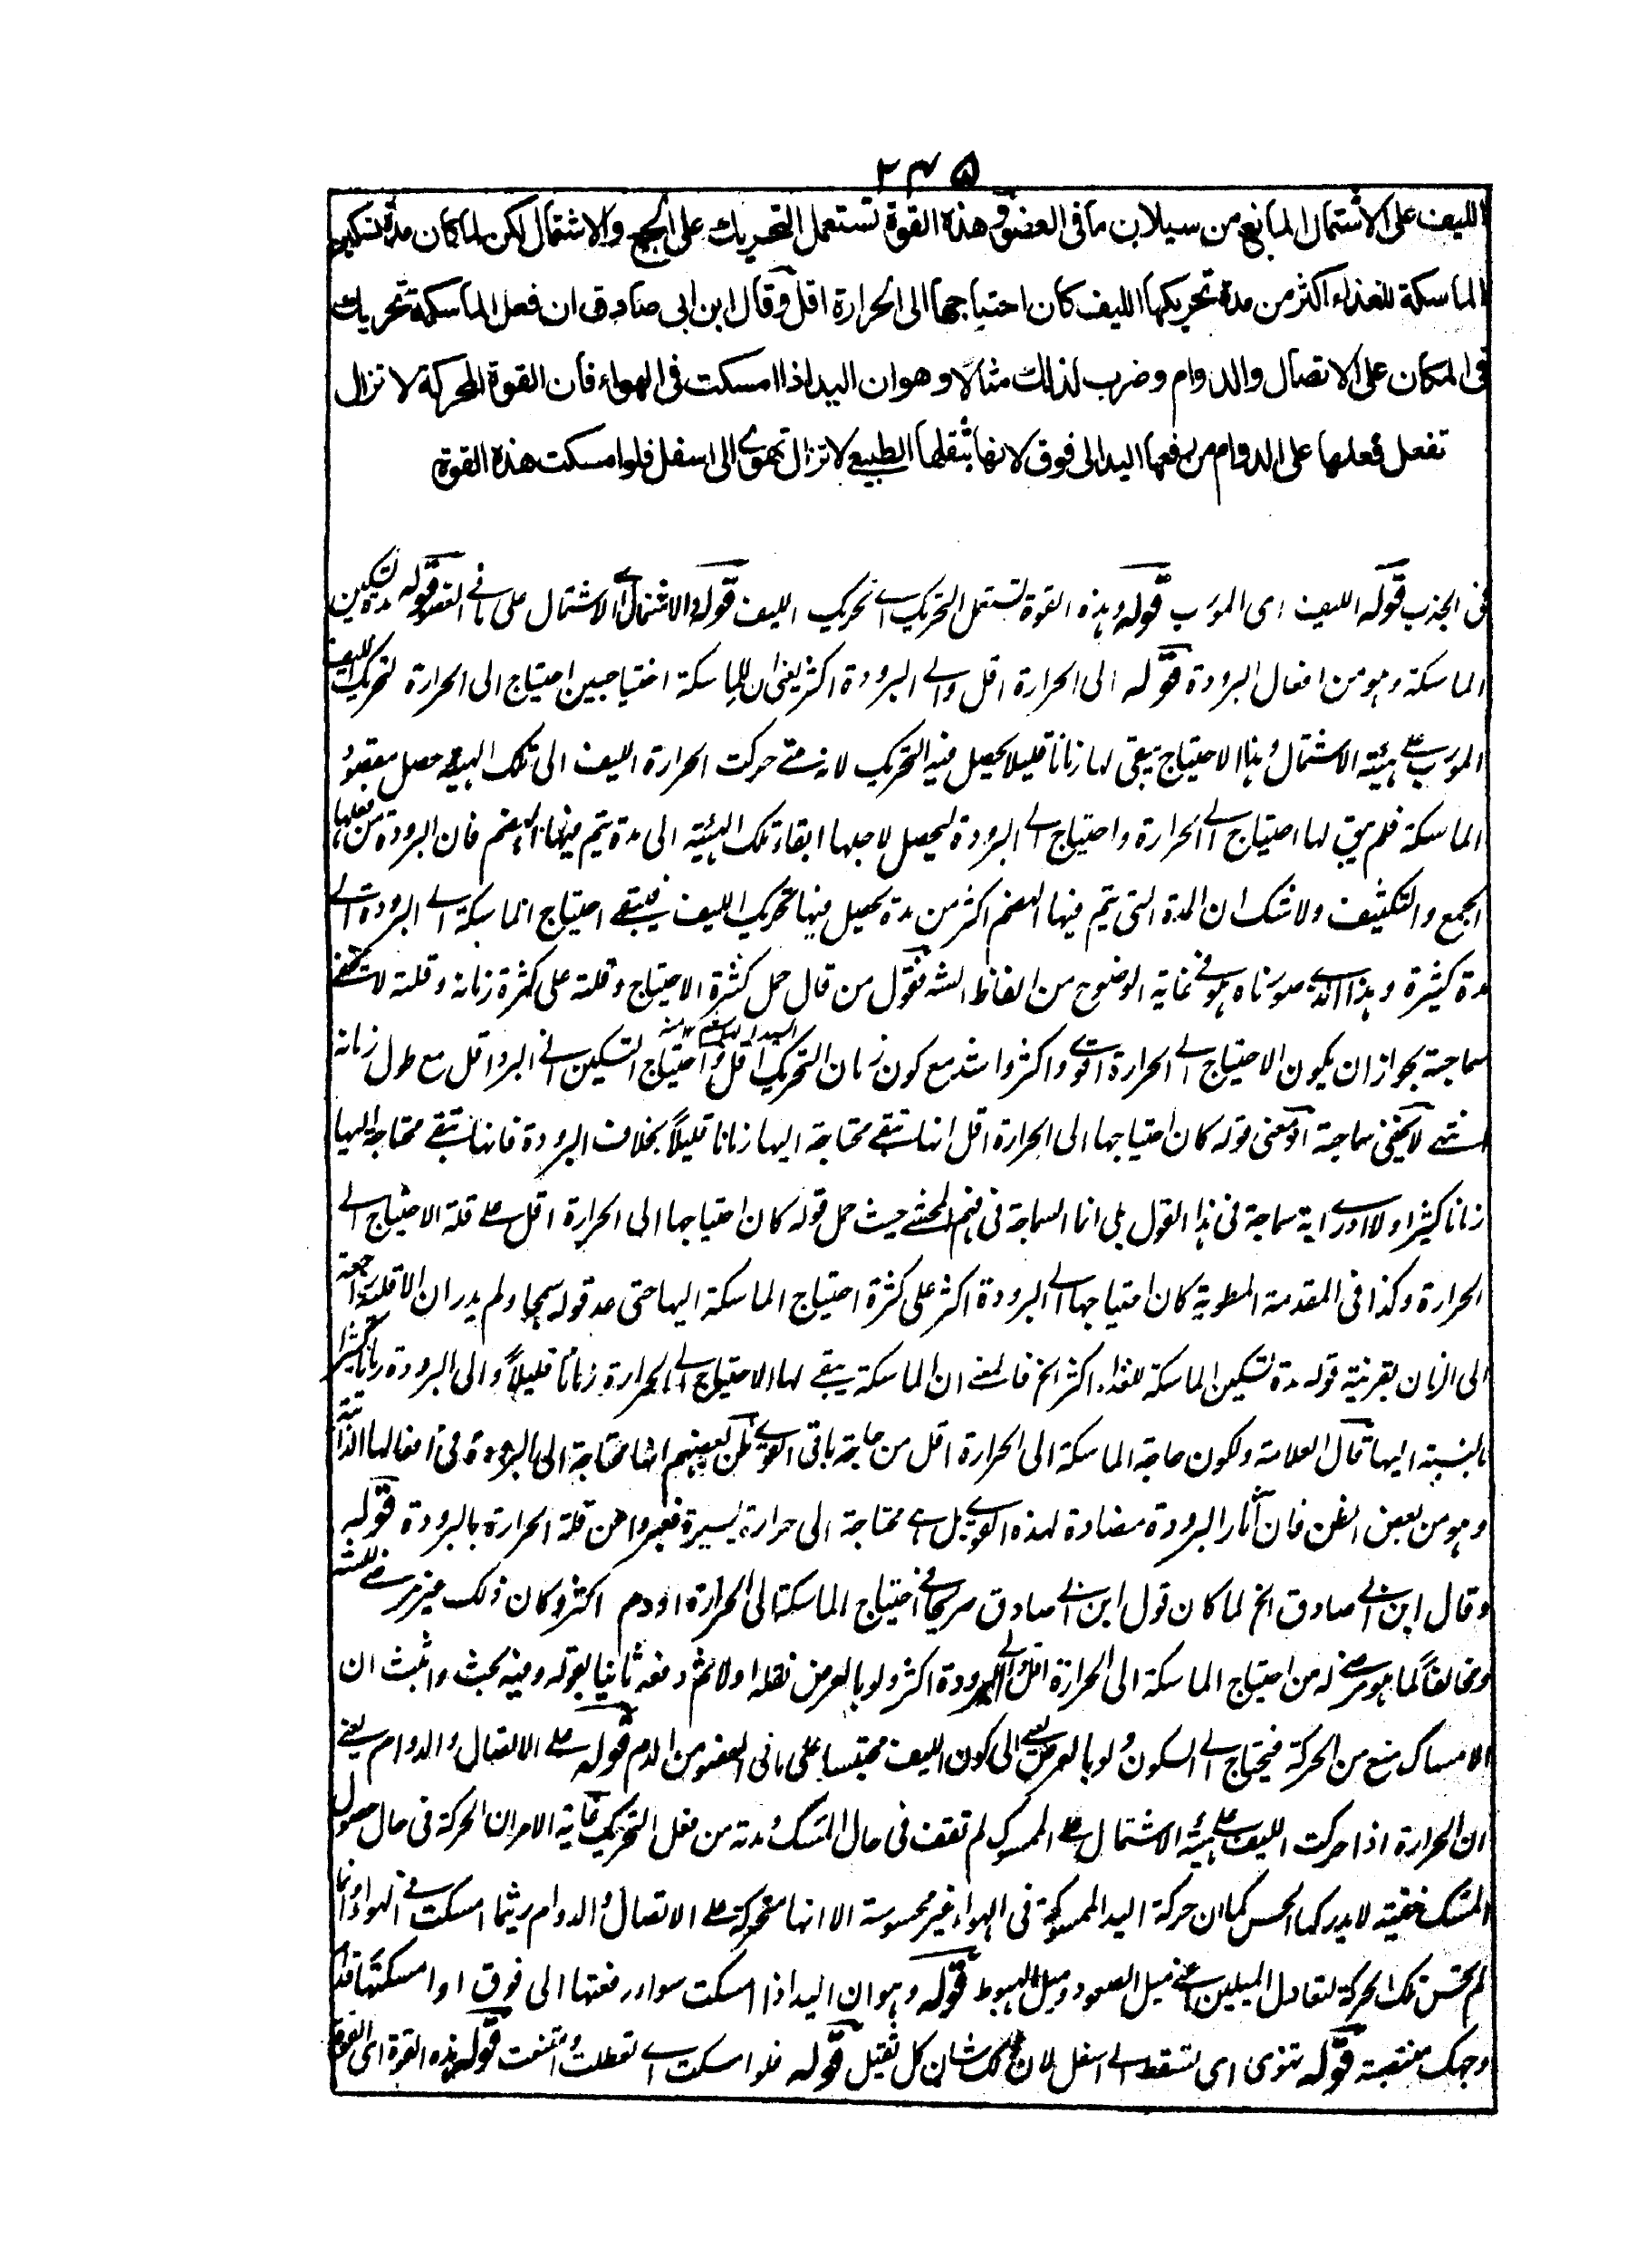 ٢٣٥
الليف على الاشتمال المانع من سيلان ما فى العضو وهذه القوة تستعمل التحريك على الجمع والاشتمال لكن لما كان مدة تسكين
الماسكة للغذاء اكثر من مدة تحريكها الليف كان احتياجها الى الحرارة اقل وقال ابن ابى صادق ان فعل الماسكة تحريك
فى المكان على الاتصال والدوام وضرب لذلك مثالا وهو ان اليد اذا امسكت فى الهواء فان القوة المحركة لا تزال
تفعل فعلها على الدوام من رفعها اليد الى فوق لانها بثقلها الطبيعے لا تزال تهوى الى اسفل فلو امسكت هذه القوة
فى الجذب قوله الليف اى المورب قوله وهذه القوة تستعمل التحريك اے تحريك الليف قوله والاشتمال اے الاشتمال على ما فے العضو قوله مدة تسكين
الماسكة وهو من افعال البرودة قوله الى الحرارة اقل والے البرودة اكثر يعنى ان للماسكة احتياجين احتياج الى الحرارة لتحريك الليف
المورب على هيئة الاشتمال وهذا الاحتياج يبقى لها زمانا قليلا يحصل فيه التحريك لانه متے حركت الحرارة الليف الى تلك الهيئة حصل مقصود
الماسكة فلم يبق لها احتياج الے الحرارة واحتياج الے البرودة ليحصل لاجلها ابقاء تلك الهيئة الى مدة يتم فيها الهضم فان البرودة من فعلها
الجمع والتكثيف ولا شك ان المدة التى يتم فيها الهضم اكثر من مدة يحصل فيها تحريك الليف فيبقے احتياج الماسكة الے البرودة الے
مدة كثيرة وهذا الذے صورناه هو فے غاية الوضوح من الفاظ الشه فقول من قال حمل كثرة الاحتياج وقلته على كثرة زمانه وقلته لا تخفے
سماجته لجواز ان يكون الاحتياج الے الحرارة اقوے واكثر واشد مع كون زمان التحريك اقل واحتياج التسكين الے البرد اقل مع طول زمانه
انتهے لا تخفى سماجته اذ معنى قوله كان احتياجها الى الحرارة اقل انها تبقے محتاجة اليها زمانا قليلاً بخلاف البرودة فانها تبقے محتاجة اليها
زمانا كثيرا ولا ادرے اية سماجة فى هذا القول بل انما السماجة فى فهم المحشے حيث حمل قوله كان احتياجها الى الحرارة اقل علے قلة الاحتياج الے
الحرارة وكذا فى المقدمة المطوية كان احتياجها الے البرودة اكثر على كثرة احتياج الماسكة اليها حتى عد قوله سمجا ولم يدر ان الاقلية راجعة
الى الزمان بقرينة قوله مدة تسكين الماسكة للغذاء اكثر الخ فالمعنے ان الماسكة يبقے لها الاحتياج الے الحرارة زماناً قليلاً والى البرودة زمانا كثيرا
بالنسبة اليها قال العلامة ولكون حاجة الماسكة الى الحرارة اقل من حاجة باقى القوے ظن بعضهم انها محتاجة الى البرودة فى افعالها الذاتية
وهو من بعض الظن فان آثار البرودة مضادة لهذه القوے بل هے محتاجة الى حرارة يسيرة فعبروا عن قلة الحرارة بالبرودة قوله
وقال ابن ابے صادق الخ لما كان قول ابن ابے صادق صريحا فے احتياج الماسكة الى الحرارة ادوم اكثر وكان ذلك غير مرضے للشه
ومخالفاً لما هو مرضے له من احتياج الماسكة الى الحرارة اقل والے البرودة اكثر ولو بالعرض نقله اولا ثم دفعه ثانيا بقوله وفيه بحث واثبت ان
الامساك منع من الحركة فيحتاج الے السكون ولو بالعرض اے الى كون الليف محتبسا على ما فى العضو من الدم قوله علے الاتصال والدوام يعنے
ان الحرارة اذا حركت الليف علے هيئة الاشتمال علے الممسوك لم تقف فى حال المسك مدته من فعل التحريك غاية الامر ان الحركة فى حال حصول
المسك خفية لا يدركها الحس كما ان حركة اليد الممسوكة فى الهواء غير محسوسة الا انها متحركة علے الاتصال والدوام ريثما امسكت فے الهواء وانما
لم تحس تلك الحركة لتعادل الميلين اعنے ميل الصعود وميل الهبوط قوله وهو ان اليد اذا امسكت سواء رفعتها الى فوق او امسكتها قدام
وجهك منتصبة قوله تهوى اى تسقط الے اسفل لان ذلك شان كل ثقيل قوله فلو امسكت اے تعطلت وامتنعت قوله هذه القوة اى القوة